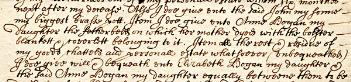 next after my decease Also I doe give unto the said John my sonne
my biggest brasse pott. Item I doe give unto Anne Bogan my
daughter the fether bed on which her mother dyed with the bolster
blankett & coverlett belonging to it. Item all the rest & residue of
my goods chattells and personall estate whatsoever unbequeathed
I doe give will & bequeath unto Elizabeth Bogan my daughter &
the said Anne Bogan my daughter equally betweene them to be